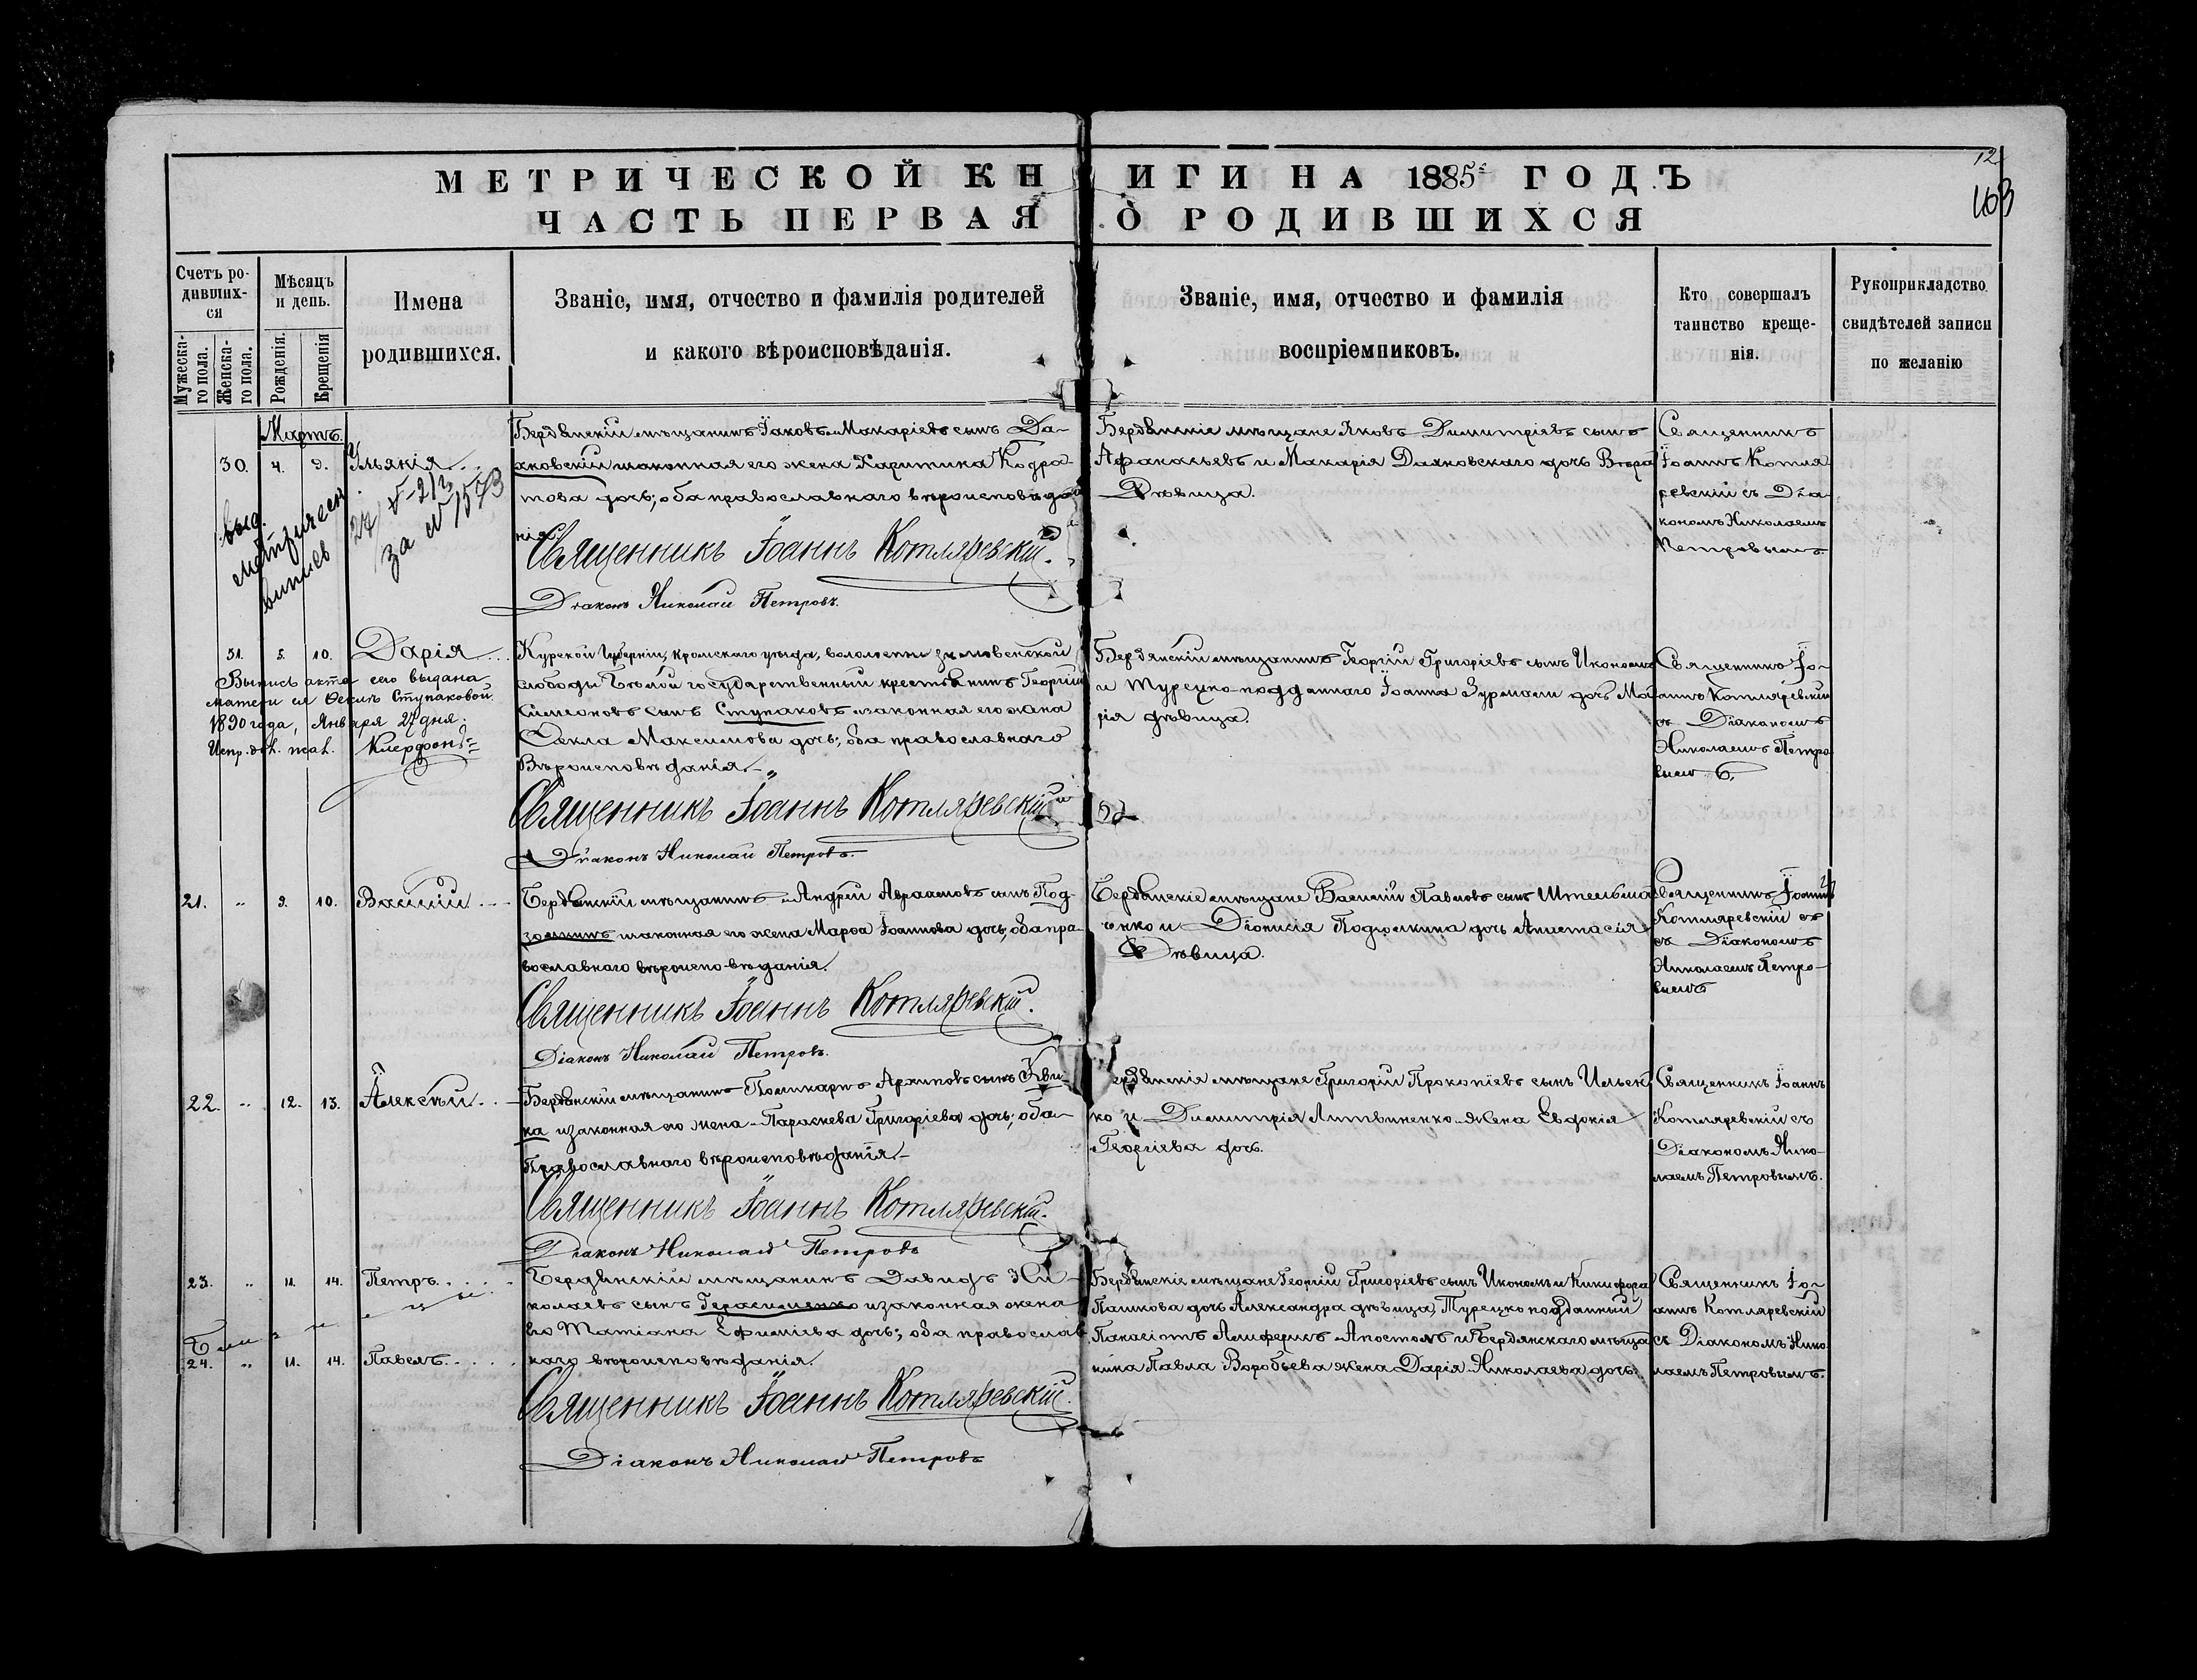 МЕТРИЧЕСКОЙ КНИГИ НА 1885 ГОДЪ
12
163
ЧАСТЬ ПЕРВАЯ О РОДИВШИХСЯ
Счетъ ро-
дивших-
ся
Мужеска-
го пола.
Женска-
го пола.
Мѣсяцъ
и день.
Рожденія.
Крещенія
Имена
родившихся.
Званіе, имя, отчество и фамилія родителей
и какого вѣроисповѣданія.
Званіе, имя, отчество и фамилія
воспріемниковъ.
Кто совершалъ
таинство креще-
нія.
Рукоприкладство
свидѣтелей записи
по желанію
Мартъ
30. 4. 9.
выд.
метрическ
27/V-213
за № 1573
Бердянскій мѣщанинъ Іаковъ Макаріевъ сынъ Да-
законная его жена Харитина Кодра-
това дочь; оба православнаго вѣроисповѣда
нія.
Священникъ Іоаннъ Котляревскій.
Діаконъ Николай Петровъ.
Бердянскіе мѣщане Яковъ Димитріевъ сынъ
Афанасьевъ и Макарія Даяковскаго дочь Вѣра
Дѣвица.
Священникъ
Іоаннъ Котля
ревскій съ Діа
кономъ Николаемъ
Петровымъ
31. 5. 10. Дарія
Выпись акта сего выдана
матери ея Ѳеклѣ Ступаковой
1890 года, Января 27 дня.
Испр. дол. псал.
Курской Губерніи, Кромскаго уѣзда, волости
слободы Бѣлой государственный крестьянинъ Георгій
Симеоновъ сынъ Ступаковъ и законная его жена
Ѳекла Максимова дочь; оба православнаго
Вѣроисповѣданія.
Священникъ Іоаннъ Котляревскій
Діаконъ Николай Петровъ.
Бердянскій мѣщанинъ Георгій Григоріевъ сынъ Икономъ
и Турецко-подданнаго Іоанна дочь Ма
рія дѣвица.
Священникъ Іо-
аннъ Котляревскій
съ Діакономъ
Николаемъ Петро
вымъ
21. " 9. 10. Василій
Бердянскій мѣщанинъ Андрей Авраамовъ сынъ Под-
законная его жена Марѳа Іоаннова дочь, оба пра-
вославнаго вѣроисповѣданія.
Священникъ Іоаннъ Котляревскій.
Діаконъ Николай Петровъ.
Бердянскіе мѣщане Василій Павловъ сынъ Штельма
ченко и Діонисія дочь Анастасія
Дѣвица.
Священникъ Іоаннъ
Котляревскій съ
съ Діакономъ
Николаемъ Петро-
вымъ
22. " 12. 13. Алексѣй
Бердянскій мѣщанинъ Поликарпъ Архиповъ сынъ Кви-
ка и законная его жена Параскева Григоріева дочь; оба
Православнаго вѣроисповѣданія.
Священникъ Іоаннъ Котляревскій.
Діаконъ Николай Петровъ
ердянскіе мѣщане Григорій Прокопіевъ сынъ Ильен
ко и Димитрія Литвиненко жена Евдокія
Георгіева дочь.
Священникъ Іоаннъ
Котляревскій съ
Діакономъ Нико-
лаемъ Петровымъ.
23. " 11. 14. Петръ
24. " 11. 14. Павелъ
Бердянскій мѣщанинъ Давидъ Ни-
колаевъ сынъ Герасименко и законная жена
его Татіана Ефиміева дочь; оба православ
наго вѣроисповѣданія.
Священникъ Іоаннъ Котляревскій.
Діаконъ Николай Петровъ
Бердянскіе мѣщане Георгій Григоріевъ сынъ Икономъ и Никифора
Пашкова дочь Александра дѣвица, Турецко подданный
Апостолъ и Бердянскаго мѣща
нина Павла Воробьева жена Дарія Николаева дочь.
Священникъ Іо-
аннъ Котляревскій
съ Діакономъ Нико
лаемъ Петровымъ.